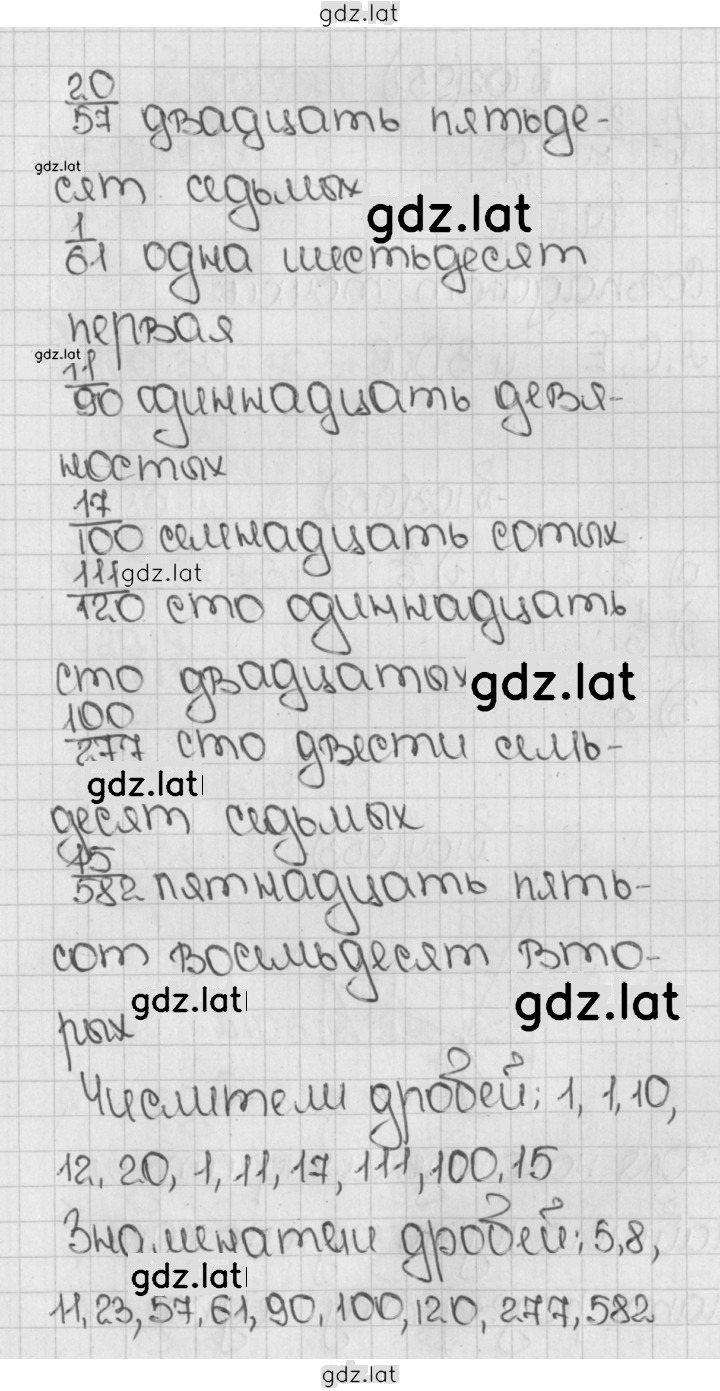 gdz.lat
20/57 двадцать пятьде-
gdz.lat
сят седьмых
gdz.lat
1/61 одна шестьдесят
первая
gdz.lat
11/90 одиннадцать девя-
ностых
17/100 семнадцать сотых
gdz.lat
111/120 сто одиннадцать
сто двадцатых
gdz.lat
100/277 сто двести семь-
gdz.lat
десят седьмых
15/582 пятнадцать пять-
сот восемьдесят вто-
gdz.lat
gdz.lat
рых
Числители дробей: 1, 1, 10,
12, 20, 1, 11, 17, 111, 100, 15
Знаменатели дробей: 5, 8,
gdz.lat
11, 23, 57, 61, 90, 100, 120, 277, 582
gdz.lat